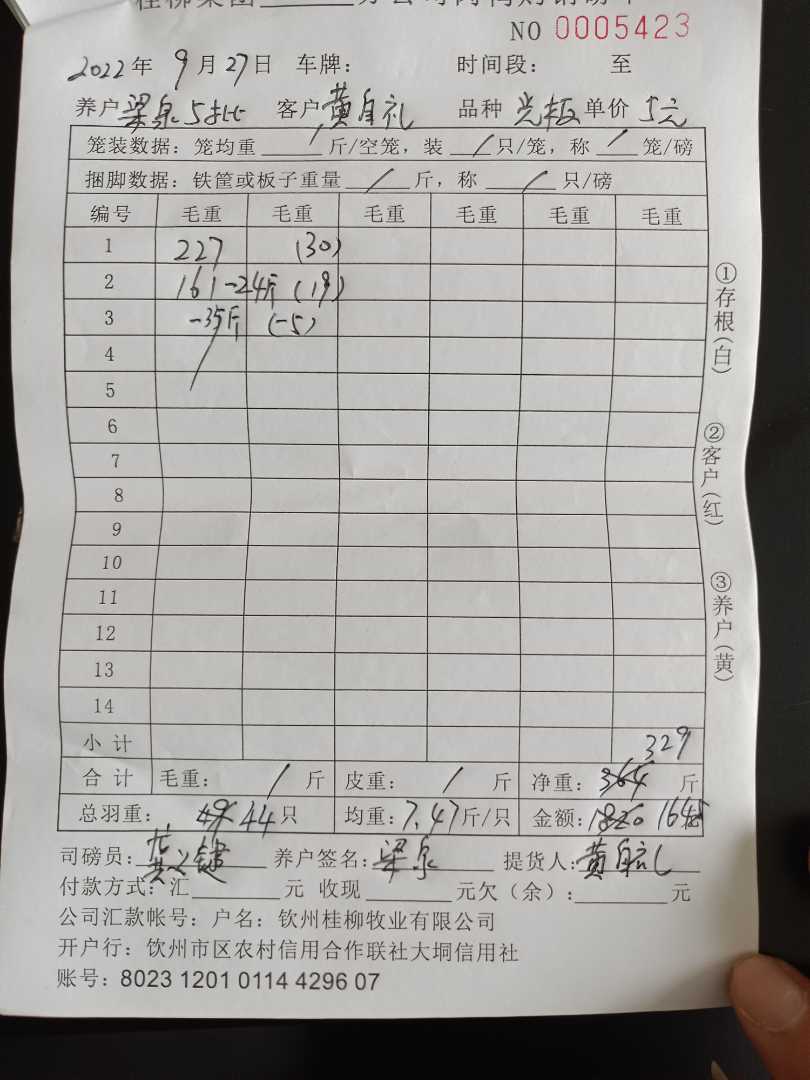 NO 0005423
2022年 9月27日 车牌： 时间段： 至
养户 梁泉5批 客户 黄自礼 品种 光板 单价 5元
笼装数据：笼均重 / 斤/空笼，装 / 只/笼，称 / 笼/磅
捆脚数据：铁筐或板子重量 / 斤，称 / 只/磅
编号 毛重 毛重 毛重 毛重 毛重 毛重
1 227 (30)
2 161-24斤 (19)
3 -35斤 (-5)
4
5
6
7
8
9
10
11
12
13
14
小计 329
合计 毛重： / 斤 皮重： / 斤 净重：364 斤
总羽重： 49 44只 均重：7.47斤/只 金额：1820 1645
司磅员： 养户签名：梁泉 提货人：黄自礼
付款方式：汇 元 收现 元欠（余）： 元
公司汇款帐号：户名：钦州桂柳牧业有限公司
开户行：钦州市区农村信用合作联社大垌信用社
账号：8023 1201 0114 4296 07
①存根（白）
②客户（红）
③养户（黄）